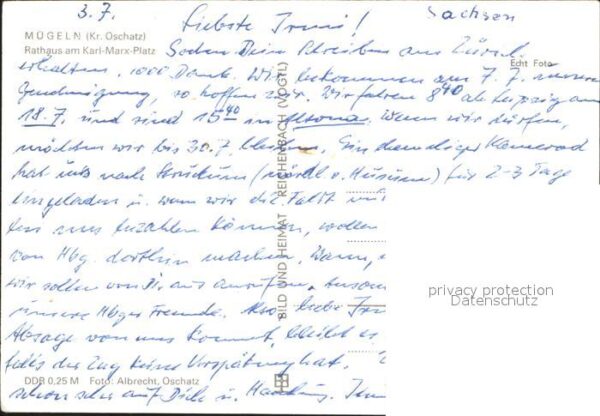 3. 7. Liebste Irmi! Sachsen
MÜGELN (Kr. Oschatz)
Rathaus am Karl-Marx-Platz
Echt Foto
Soeben Dein Schreiben aus Zürich
erhalten. 1000 Dank. Wir bekommen am 7. 7. unsere
Genehmigung, so hoffen wir. Wir fahren 8⁴⁰ ab Leipzig am
18. 7. und sind 15⁴⁰ in Altona. Wenn wir dürfen,
möchten wir bis 30. 7. bleiben. Ein ehemaliger Kamerad
hat uns nach (nördl. v. Husum) für 2-3 Tage
eingeladen u. wenn wir die Fahrt
uns bezahlen können, wollen
von Hbg. dorthin machen. Wenn,
wir sollen von Dir aus anrufen.
unsere Hbger Freunde. Also, liebe
Absage von uns kommt, bleibt es
falls der Zug keine Verspätung hat.
schon sehr auf Dich u. Hamburg.
BILD UND HEIMAT REICHENBACH (VOGTL)
DDR 0,25 M Foto: Albrecht, Oschatz
privacy protection
Datenschutz